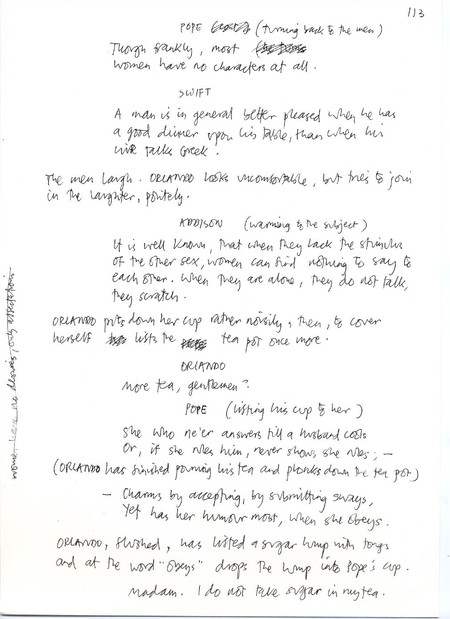 113
POPE (turning back to the men)
Though frankly, most
women have no characters at all.
SWIFT
A man is in general better pleased when he has
a good dinner upon his table, than when his
wife talks Greek.
The men laugh. ORLANDO looks uncomfortable, but tries to join
in the laughter, politely.
ADDISON (warming to the subject)
It is well known, that when they lack the stimulus
of the other sex, women can find nothing to say to
each other. When they are alone, they do not talk,
they scratch.
ORLANDO puts down her cup rather noisily, then, to cover
herself lifts the tea pot once more.
ORLANDO
More tea, gentlemen?
POPE (lifting his cup to her)
She who ne'er answers till a husband cools
Or, if she rules him, never shows she rules; –
(ORLANDO has finished pouring his tea and plonks down the tea pot)
– Charms by accepting, by submitting sways,
Yet has her humour most, when she obeys.
ORLANDO, flushed, has lifted a sugar lump with tongs
and at the word "obeys" drops the lump into Pope's cup.
Madam. I do not take sugar in my tea.
women have no desires, only affectations